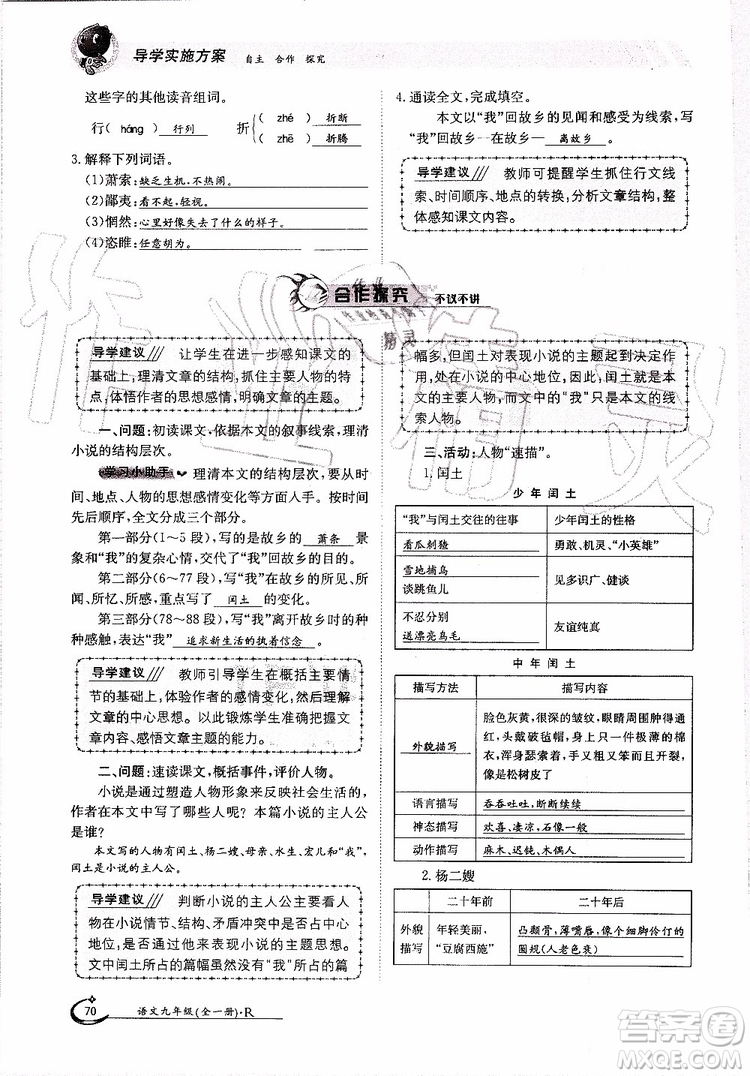 导学实施方案 自主 合作 探究
这些字的其他读音组词。
行(háng) 行列 折{(zhé) 折断
(zhē) 折腾
3. 解释下列词语。
(1)萧索:缺乏生机,不热闹。
(2)鄙夷:轻视;看不起。
(3)惘然:心里好像失去了什么的样子。
(4)恣睢:任意胡为。
4. 通读全文,完成填空。
本文以“我”回故乡的见闻和感受为线索,写“我”回故乡——在故乡—— 离故乡 。
导学建议/// 教师可提醒学生抓住行文线
索、时间顺序、地点的转换,分析文章结构,整
体感知课文内容。
合作探究 不议不讲
导学建议/// 让学生在进一步感知课文的
基础上,理清文章的结构,抓住主要人物的特
点,体悟作者的思想感情,明确文章的主题。
一、问题:初读课文,依据本文的叙事线索,理清
小说的结构层次。
学习小助手 理清本文的结构层次,要从时
间、地点、人物的思想感情变化等方面入手。按时间
先后顺序,全文分成三个部分。
第一部分(1~5段),写的是故乡的 萧条 景
象和“我”的复杂心情,交代了“我”回故乡的目的。
第二部分(6~77段),写“我”在故乡的所见、所
闻、所忆、所感,重点写了 闰土 的变化。
第三部分(78~88段),写“我”离开故乡时的种
种感触,表达“我” 追求新生活的执着信念 。
导学建议/// 教师引导学生在概括主要情
节的基础上,体验作者的感情变化,然后理解
文章的中心思想。以此锻炼学生的概括文章
内容、感悟文章主题的能力。
二、问题:速读课文,概括事件,评价人物。
小说是通过塑造人物形象来反映社会生活的,
作者在本文中写了哪些人呢?本篇小说的主人公
是谁?
本文写的人物有闰土、杨二嫂、母亲、水生、宏儿和“我”,
闰土是小说的主人公。
导学建议/// 判断小说的主人公主要看人
物在小说情节、结构、矛盾冲突中是否占中心
地位,是否能够有力地表现小说的主题思想。
文中闰土所占的篇幅虽然没有“我”所占的篇
幅多,但闰土对表现小说的主题起到决定作
用,处在小说的中心地位,因此,闰土是本
文的主要人物,而文中“我”只是本文的线
索人物。
三、活动:人物“速描”。
1. 闰土
少年闰土
“我”与闰土交往的往事 少年闰土的性格
看瓜刺猹 勇敢、机灵、“小英雄”
雪地捕鸟
谈跳鱼儿 见多识广、健谈
不忍分别
送漂亮鸟毛 友谊纯真
中年闰土
描写方法 描写内容
外貌描写 脸色灰黄,很深的皱纹,眼睛周围肿得通
红,头戴破毡帽,手又粗又笨而且开裂,
像是松树皮了
语言描写 吞吞吐吐,断断续续
神态描写 欢喜、凄凉,石像一般
动作描写 麻木、迟钝、木讷恭敬
2. 杨二嫂
二十年前 二十年后
外貌描写 年轻美丽,
“豆腐西施” 凸颧骨,薄嘴唇,像个细脚伶仃的
圆规(人老色衰)
70 语文九年级(全一册)·R
作业精灵
答案圈
MXQE.COM